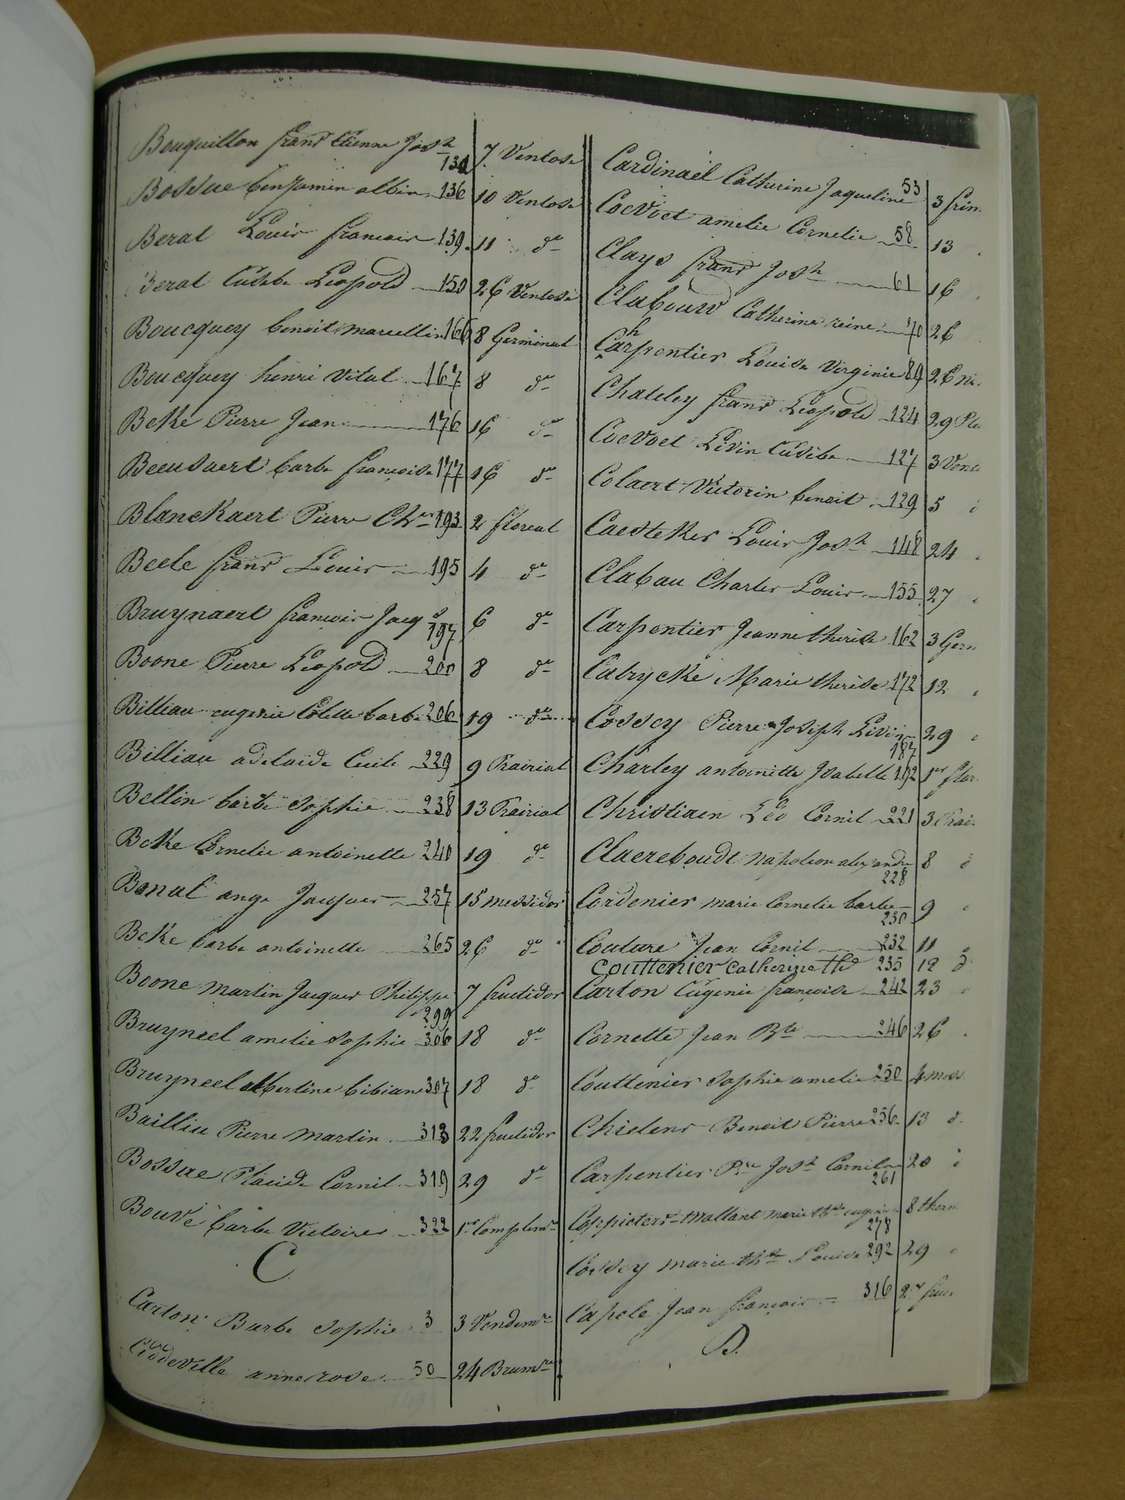 Bouquillon franc Etienne Josh 134 7 Ventose
Bossue benjamin albin 136 10 Ventose
Berat Louis francois 139 11 do
Berat Eusebe Leopold 150 26 Ventose
Boucquey benoit marcellin 166 8 Germinal
Boucquey henri Vital 167 8 do
Beke Pierre Jean 176 16 do
Beeusaert barbe françoise 177 16 do
Blanckaert Pierre Ch 193 2 floreal
Beele franc Louis 195 4 do
Bruynaert francois Jacq 197 6 do
Boone Pierre Leopold 200 8 do
Billiau eugenie Colette barbe 206 19 do
Billiau adelaide Cecile 229 9 Prairial
Bellin barbe Sophie 238 13 Prairial
Beke Cornelie antoinette 240 19 do
Bonat ange Jacques 257 15 messidor
Beke barbe antoinette 265 26 do
Boone martin Jacques Philippe 299 7 fructidor
Bruyneel amelie Sophie 306 18 do
Bruyneel albertine bibiane 307 18 do
Baillin Pierre martin 313 22 fructidor
Bossue Placide Cornil 319 29 do
Bouve barbe Victoire 322 1er Complemre
C
Carton Barbe Sophie 3 3 Vendemre
anne rose 50 24 Brumre
Cardinael Catherine Jaqueline 53 3 frim
Coevoet amelie Cornelie 58 13
Clays franc Josh 61 16
Clabouw Catherine reine 70 26
Charpentier Louise Virginie 89 26 ni
Chateley franc Leopold 124 29 Plu
Coevoet Livin Eusebe 127 3 Vent
Colaert Victorin benoit 129 5 d
Caesteker Louis Josh 148 24
Clabau Charles Louis 155 27
Carpentier Jeanne therese 162 3 Germ
Catrycke Marie therese 172 12
Cossey Pierre Joseph Livin 187 29
Charley antoinette Isabelle 192 1er flor
Christiaen Leo Cornil 221 3 Prair
Claereboudt napoleon alexandre 228 8 d
Cordenier marie Cornelie barbe 230 9
Couture Jean Cornil 232 11
Couttenier Catherine thé 235 12 d
Carton Eugenie françoise 242 23
Cornette Jean Bte 246 26
Couttenier Sophie amelie 250 4 mess
Chielens Benoit Pierre 256 13 d
Carpentier Pre Josh Cornil 261 20 d
Coppieters Wallant marie the eugenie 278 8 therm
Cossey marie the Louise 292 29
Capele Jean françois 316 2er fruc
D.